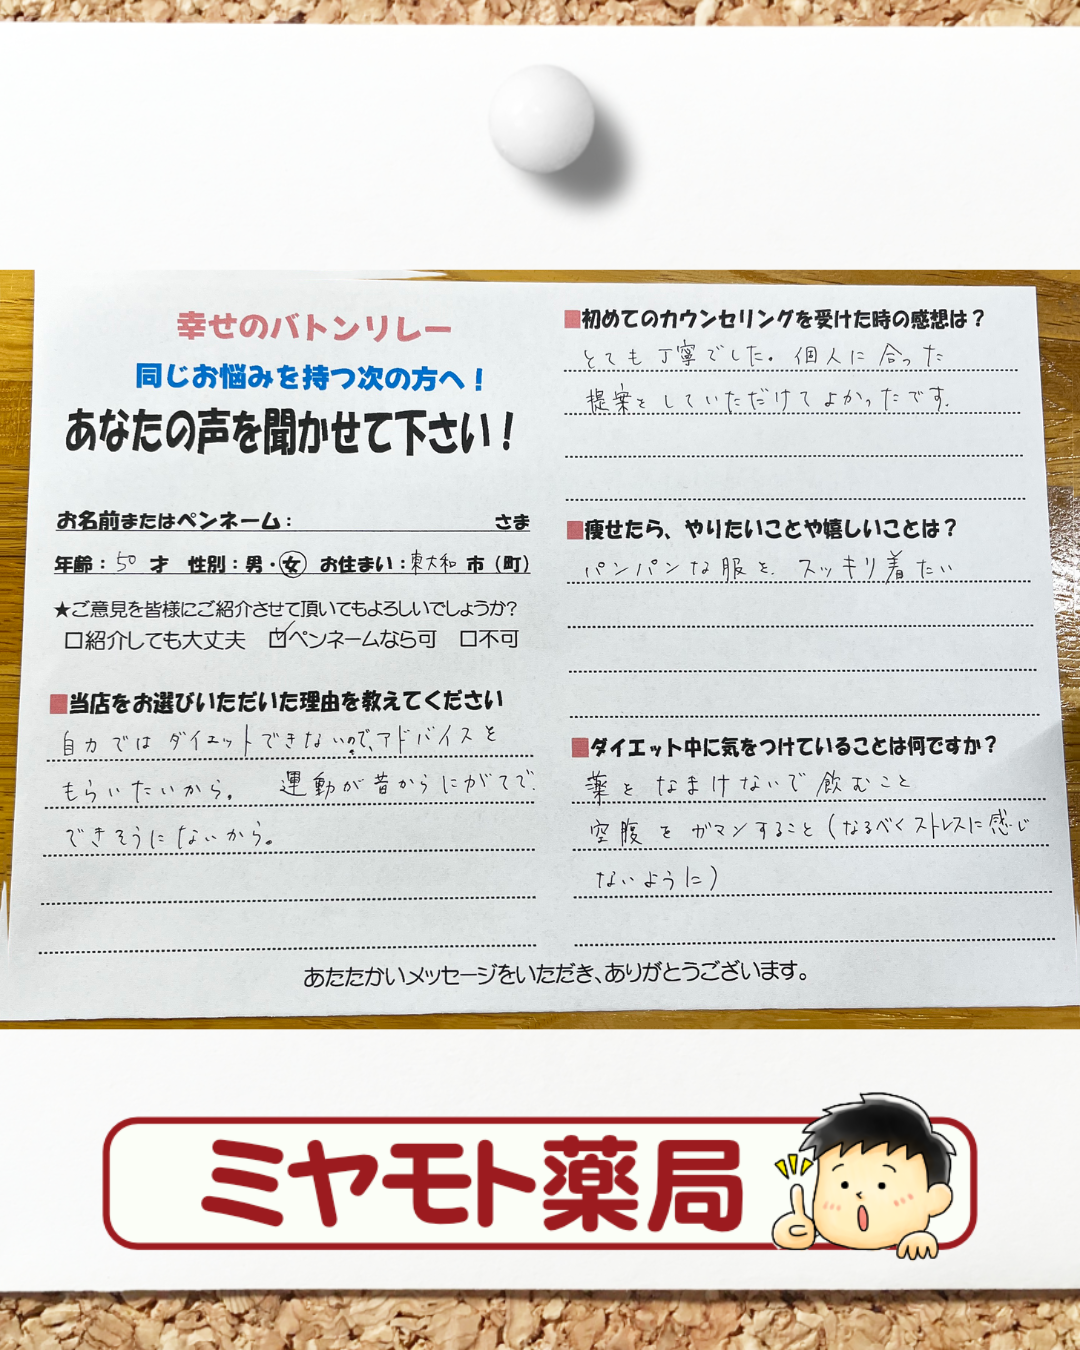 幸せのバトンリレー
同じお悩みを持つ次の方へ！
あなたの声を聞かせて下さい！
お名前またはペンネーム： さま
年齢：50 才 性別：男・女 お住まい：東大和 市（町）
★ご意見を皆様にご紹介させて頂いてもよろしいでしょうか？
□紹介しても大丈夫 ☑ペンネームなら可 □不可
■当店をお選びいただいた理由を教えてください
自力ではダイエットできないので、アドバイスを
もらいたいから。 運動が昔からにがてで、
できそうにないから。
■初めてのカウンセリングを受けた時の感想は？
とても丁寧でした。個人に合った
提案をしていただけてよかったです。
■痩せたら、やりたいことや嬉しいことは？
パンパンな服を、スッキリ着たい
■ダイエット中に気をつけていることは何ですか？
薬をなまけないで飲むこと
空腹をガマンすること（なるべくストレスに感じ
ないように）
あたたかいメッセージをいただき、ありがとうございます。
ミヤモト薬局